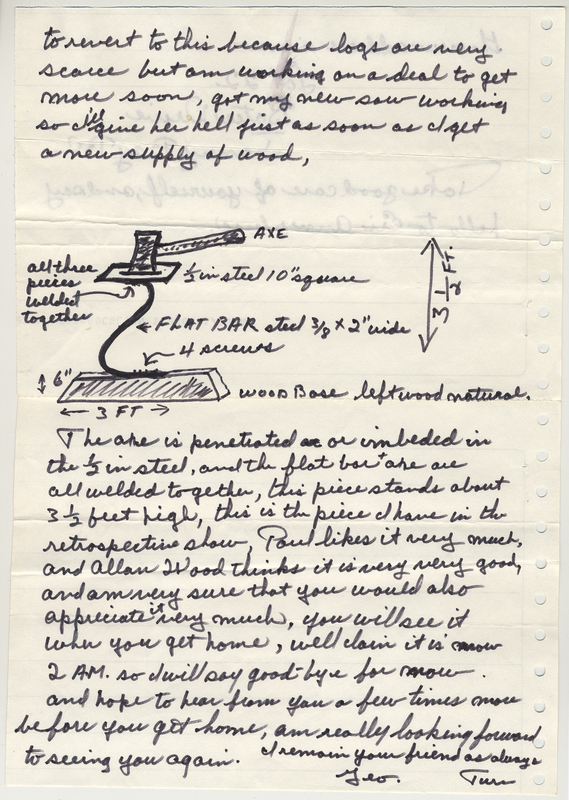 to revert to this because logs are very
scarce but am working on a deal to get
more soon, got my new saw working
so I'll give her hell just as soon as I get
a new supply of wood,
AXE
all three
pieces
welded
together
1/2 in steel 10" square
3 1/2 FT.
FLAT BAR steel 3/8 X 2" wide
4 screws
6"
3 FT
wood Base left wood natural.
The axe is penetrated or imbeded in
the 1/2 in steel, and the flat bar + axe are
all welded together, this piece stands about
3 1/2 feet high, this is the piece I have in the
retrospective show, Paul likes it very much,
and Allan Wood thinks it is very very good,
and am very sure that you would also
appreciate it very much, you will see it
when you get home, well clain it is now
2 AM. so I will say good-bye for now.
and hope to hear from you a few times more
before you get home, am really looking forward
to seeing you again. I remain your friend as always
Geo.